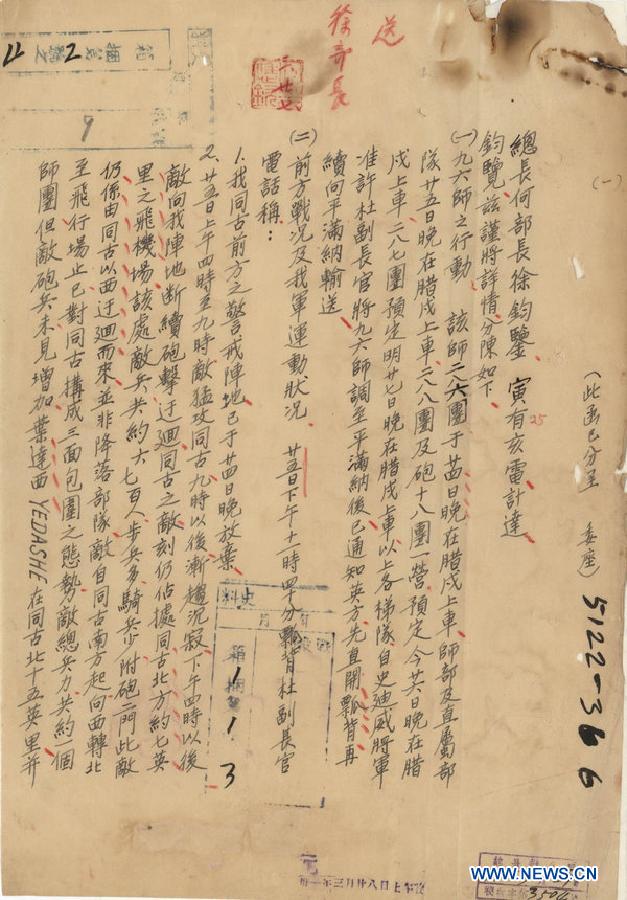 (一)
(此函已分呈 委座)
5122-366
總長何部長徐鈞鑒 寅有亥電計達
25
鈞覽茲謹將詳情分陳如下
(一)九六師之行動 該師二八六團于廿四日晚在腊戍上車師部及直屬部
隊廿五日晚在腊戍上車二八八團及砲十八團一營預定今廿六日晚在腊
戍上車二八七團預定明廿七晚在腊戍上車以上各梯隊自史迪威將軍
准許杜副長官將九六師調至平滿納後已通知英方先直開瓢背再
續向平滿納輸送
(二)前方戰况及我軍運動狀况 廿五日下午十一時四十分瓢背杜副長官
電話稱：
1.我同古前方之警戒陣地已于廿四日晚放棄
2.廿五日上午四時至九時敵猛攻同古九時以後漸趨沉寂下午四時以後
敵向我陣地断續砲擊迂迴同古之敵刻仍佔據同古北方約七英
里之飛機場該處敵兵共約六七百人步兵多騎兵少附砲二門此敵
仍係由同古以西迂迴而來並非降落部隊敵自同古南方起向西轉北
至飛行場止已對同古構成三面包圍之態勢敵總兵力共約一個
師團但敵砲兵未見增加葉達西YEDASHE在同古北十五英里并
送
徐部長
六廿七
箱 捆 號
2
9
史料
箱 捆 號
1 1 3
卅一年三月廿八日上午
3504
WWW.NEWS.CN